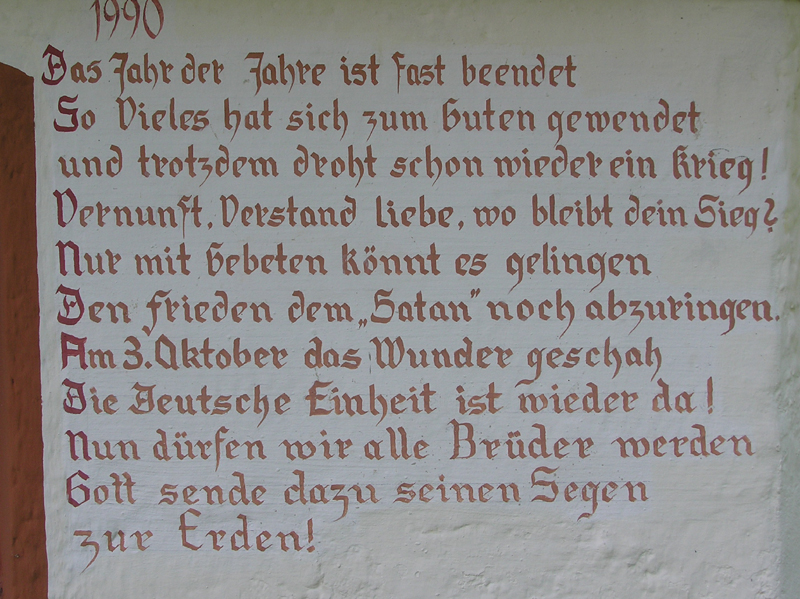 1990
Das Jahr der Jahre ist fast beendet
So Vieles hat sich zum Guten gewendet
und trotzdem droht schon wieder ein Krieg!
Vernunft, Verstand liebe, wo bleibt dein Sieg?
Nur mit Gebeten könnt es gelingen
Den Frieden dem „Satan" noch abzuringen.
Am 3. Oktober das Wunder geschah
Die Deutsche Einheit ist wieder da!
Nun dürfen wir alle Brüder werden
Gott sende dazu seinen Segen
zur Erden!